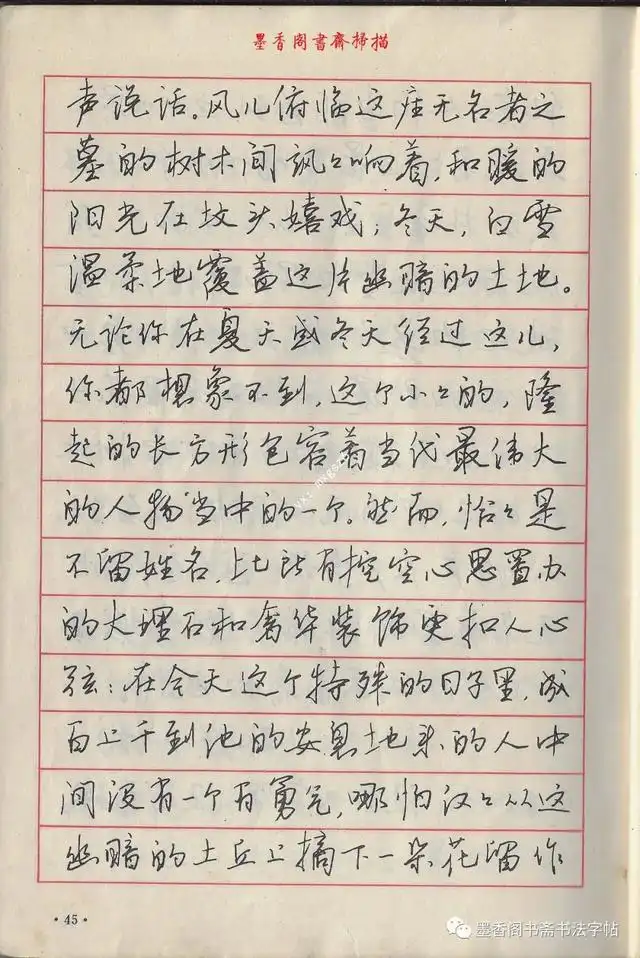 墨香阁書齋掃描
声说话。风儿俯临这座无名者之
墓的树木间飒々响着，和暖的
阳光在坟头嬉戏；冬天，白雪
温柔地覆盖这片幽暗的土地。
无论你在夏天或冬天经过这儿，
你都想象不到，这个小々的，隆
起的长方形包容着当代最伟大
的人物当中的一个。然而，恰々是
不留姓名，比所有挖空心思置办
的大理石和奢华装饰更扣人心
弦：在今天这个特殊的日子里，成
百上千到他的安息地来的人中
间没有一个有勇气，哪怕仅々从这
幽暗的土丘上摘下一朵花留作
·45·
墨香阁书斋书法字帖